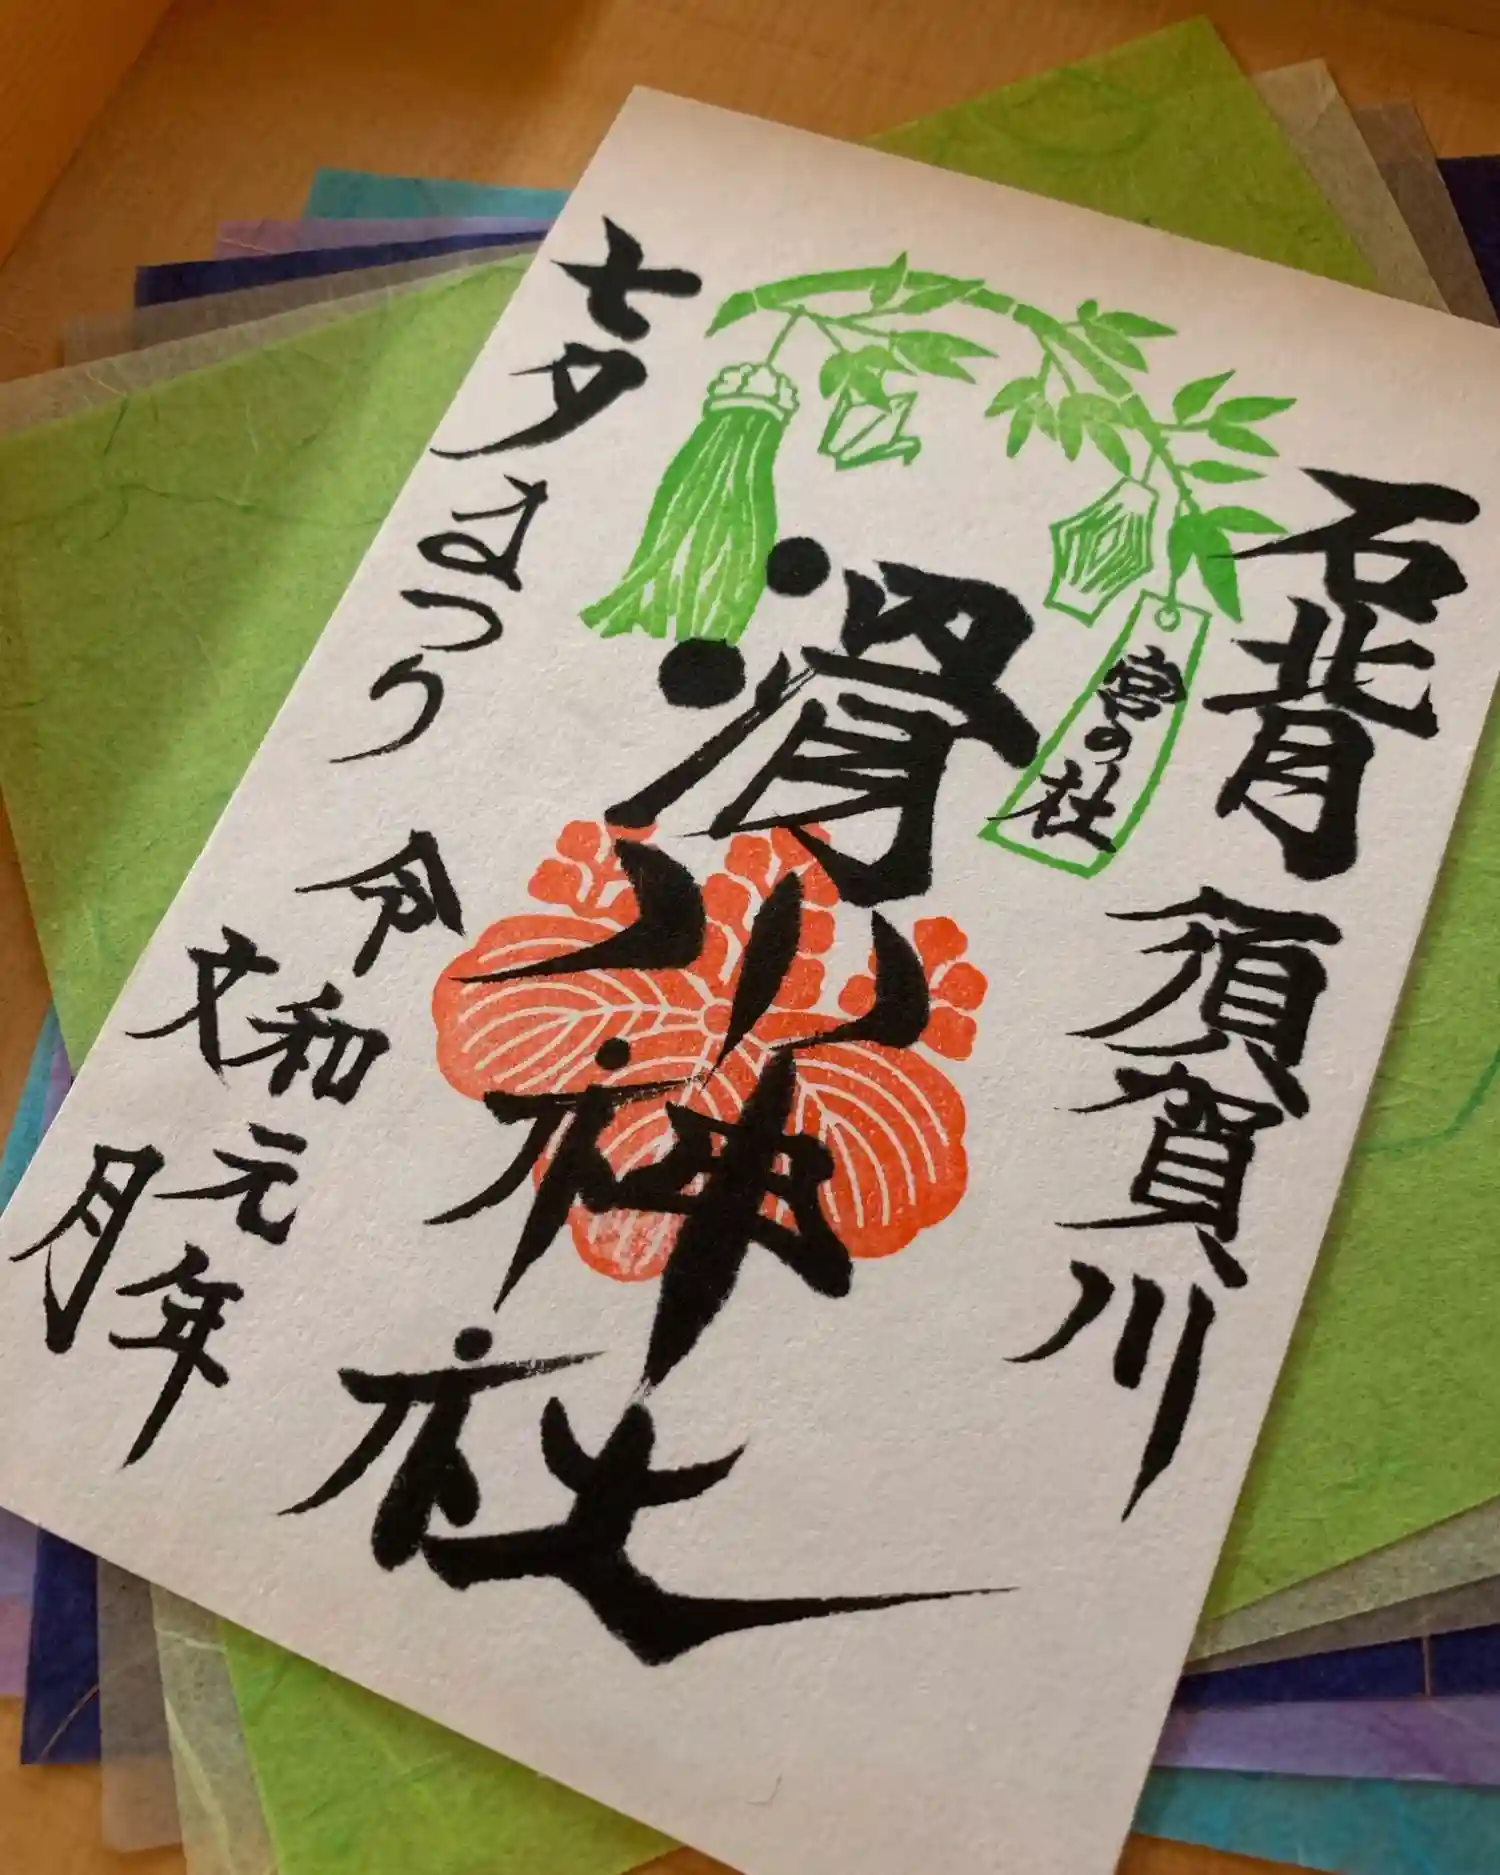 石背 須賀川
宮の杜
滑川神社
七夕まつり
令和元年
文月